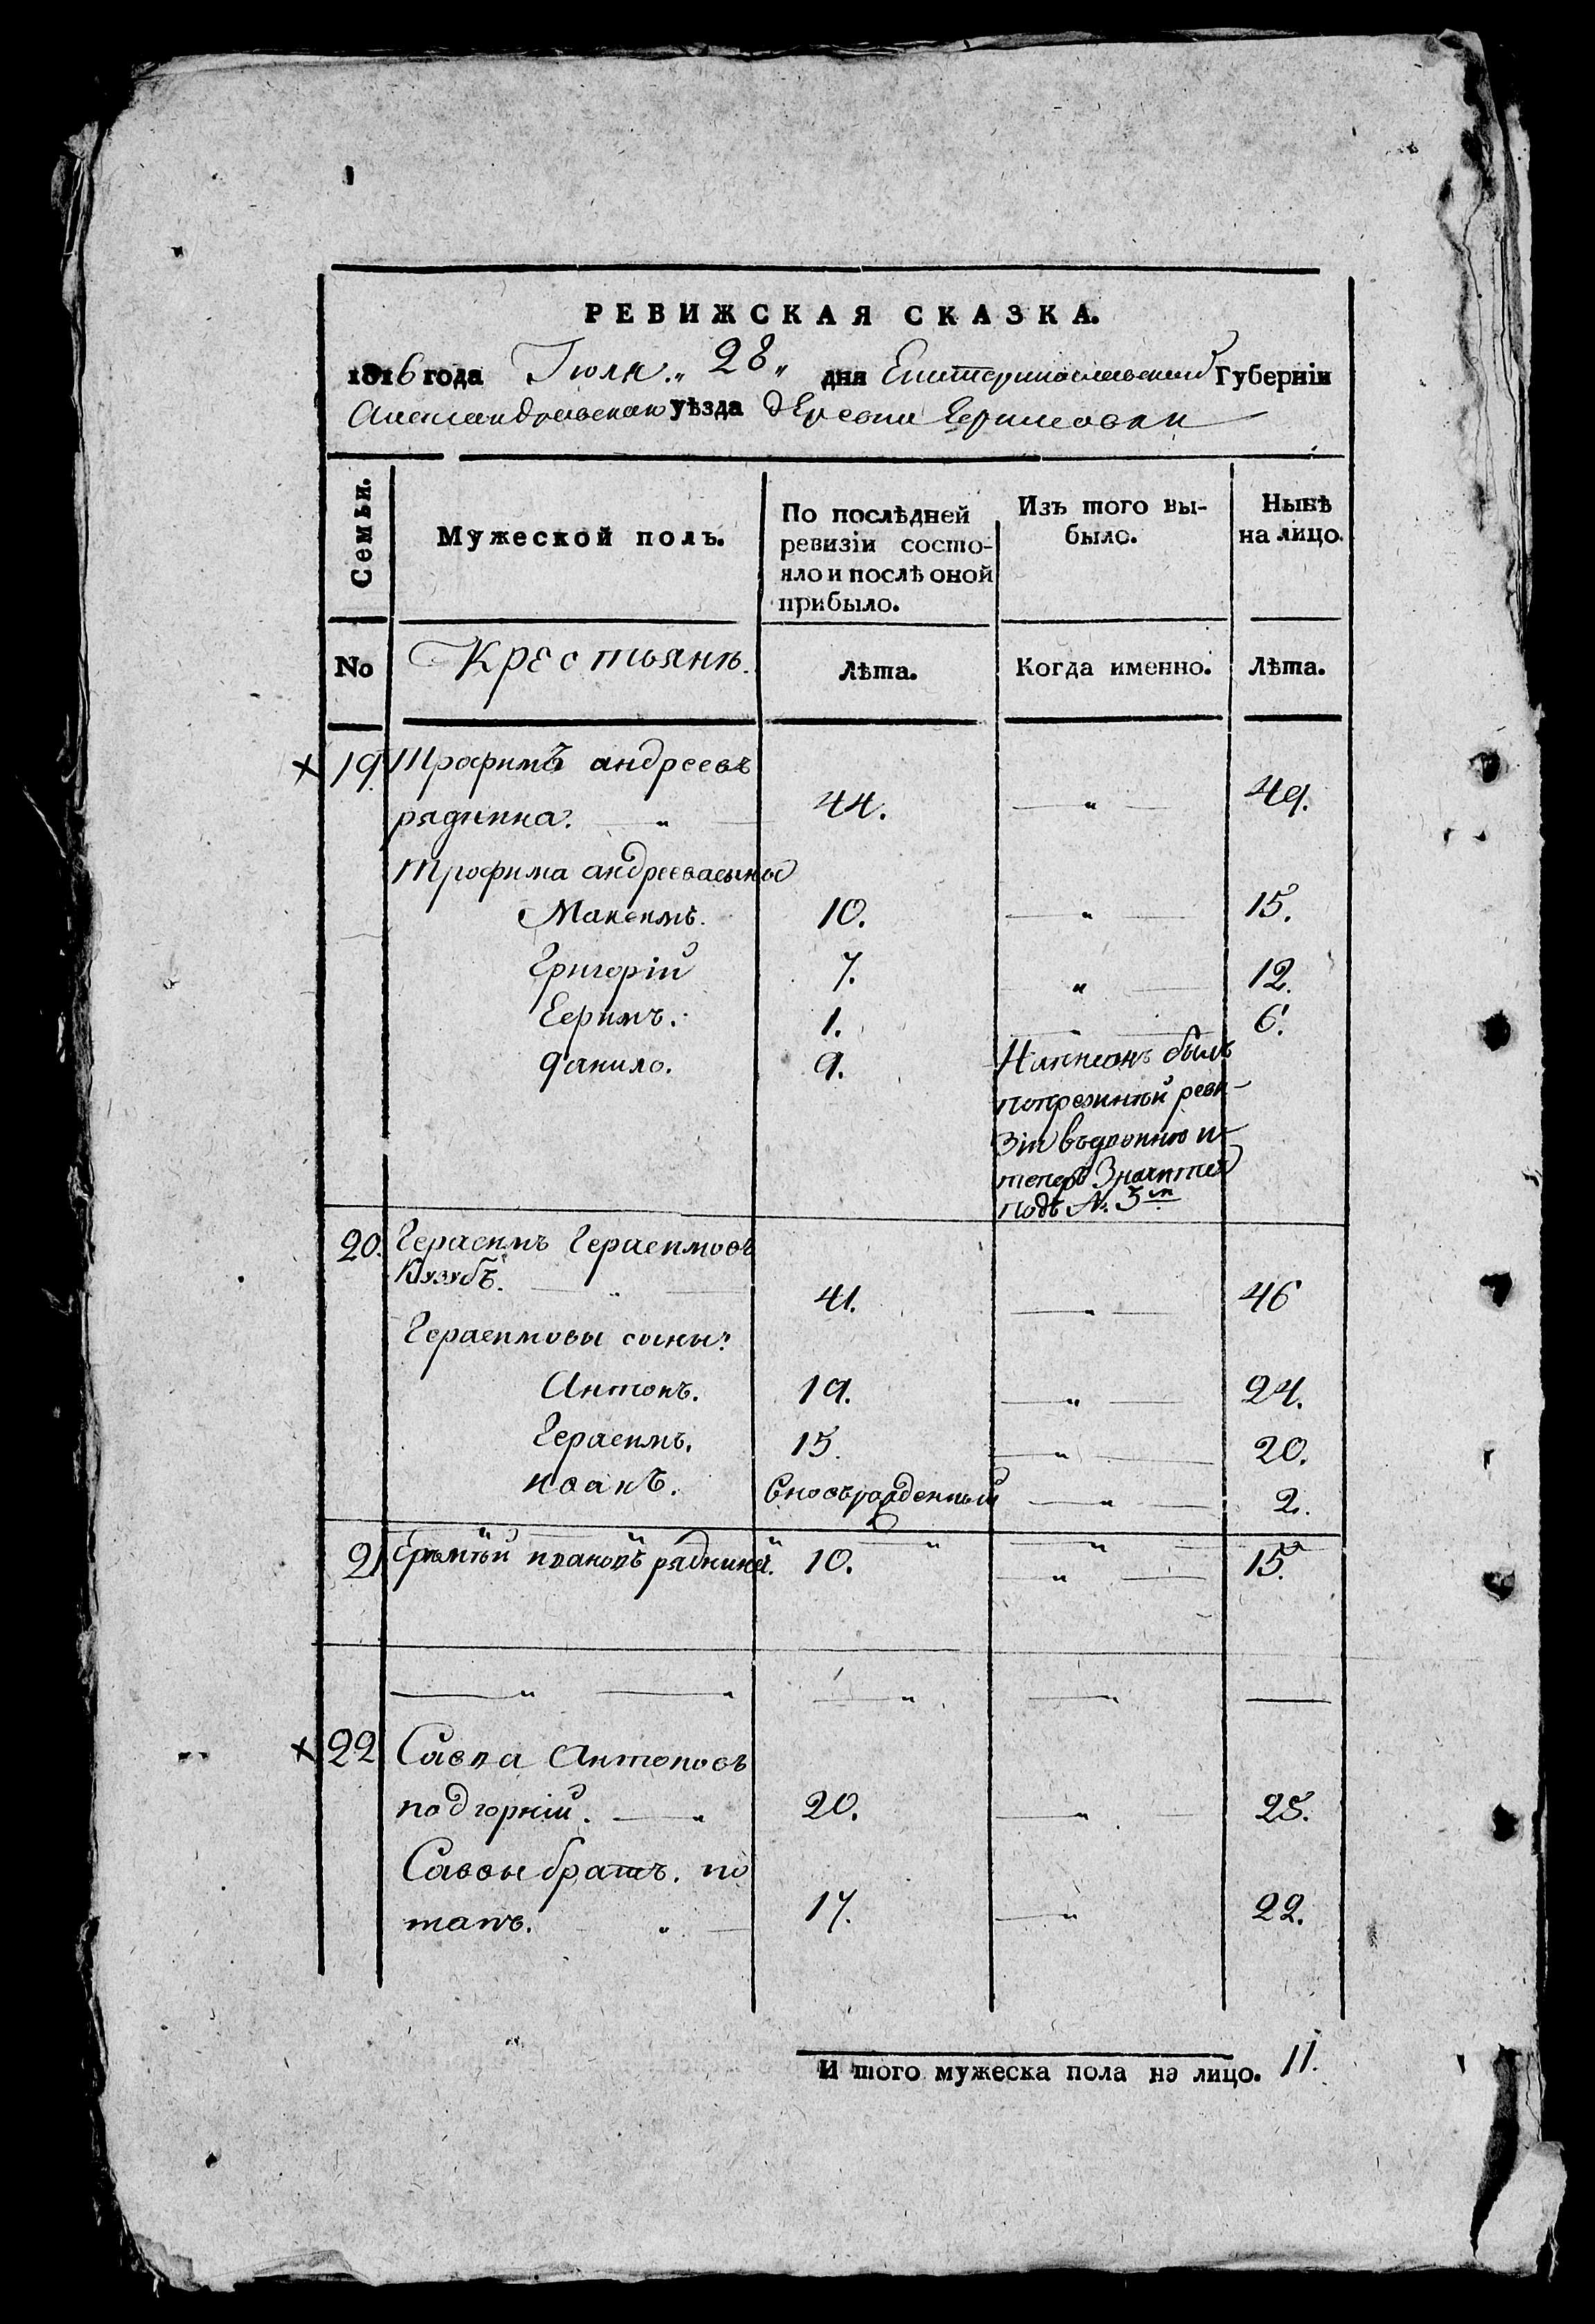 РЕВИЖСКАЯ СКАЗКА.
1816 года Іюля „ 28 „ дня Екатеринославской Губерніи
Александровскаго уѣзда деревни
Семьи.
Мужеской полъ.
По послѣдней ревизіи состояло и послѣ оной прибыло.
Изъ того выбыло.
Нынѣ на лицо.
No
Крестьянѣ.
Лѣта.
Когда именно.
Лѣта.
19 Трофимъ андреевъ
44. 49.
Трофима андреева сыновья
Максимъ. 10. 15.
Григорій 7. 12.
Ефимъ. 1. 6.
данило. 9. Написанъ былъ
ревизіи
и
теперь Значится
подъ №. 3м
20. Герасимъ Герасимовъ
Кузубъ. 41. 46
Герасимовы сыны:
Антонъ. 19. 24.
Герасимъ. 15. 20.
иванъ. вновьрожденный 2.
21 ивановъ 10. 15.
22 Савва Антоновъ
подгорній. 20. 25.
Саввы братъ. по
тапъ. 17. 22.
И того мужеска пола на лицо. 11.